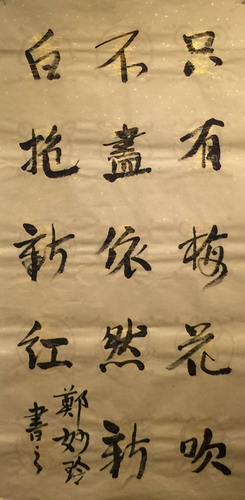 只有梅花吹
不盡依然新
白抱新紅
鄭妙玲
書之